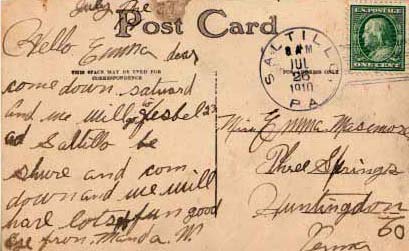 July the
Post Card
Hello Emma dear
THIS SPACE MAY BE USED FOR
CORRESPONDENCE
come down saturd
and we will go to
ad Saltillo be
shure and com
down and we will
have lots of fun good
from Manda W.
SALTILLO
8 AM
JUL
26
1910
PA
U.S. POSTAGE
ONE CENT
Miss Emma
Three Springs
Huntingdon
Co
Penna